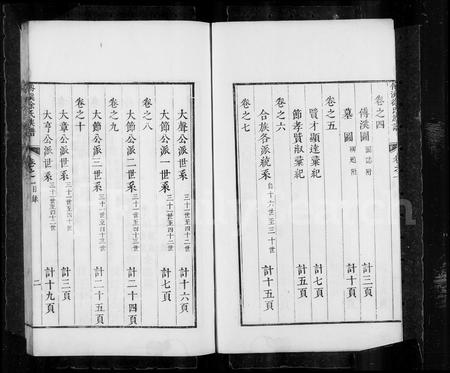 卷之四
傳溪圖 圖誌附 計三頁
墓圖 計十頁
卷之五
賢才顯達彙祀 計七頁
節孝貲狀彙祀 計五頁
卷之六
合族各派統系 自十六世至三十世 計十五頁
卷之七
大聲公派世系 三十一世至四十二世 計十六頁
卷之八
大節公派一世系 三十一世至四十二世 計七頁
大節公派二世系 三十一世至四十世 計二十四頁
卷之九
大節公派三世系 三十一世至四十世 計二十五頁
卷之十
大章公派世系 計三頁
大亨公派世系 計十九頁
卷之一 目錄
二